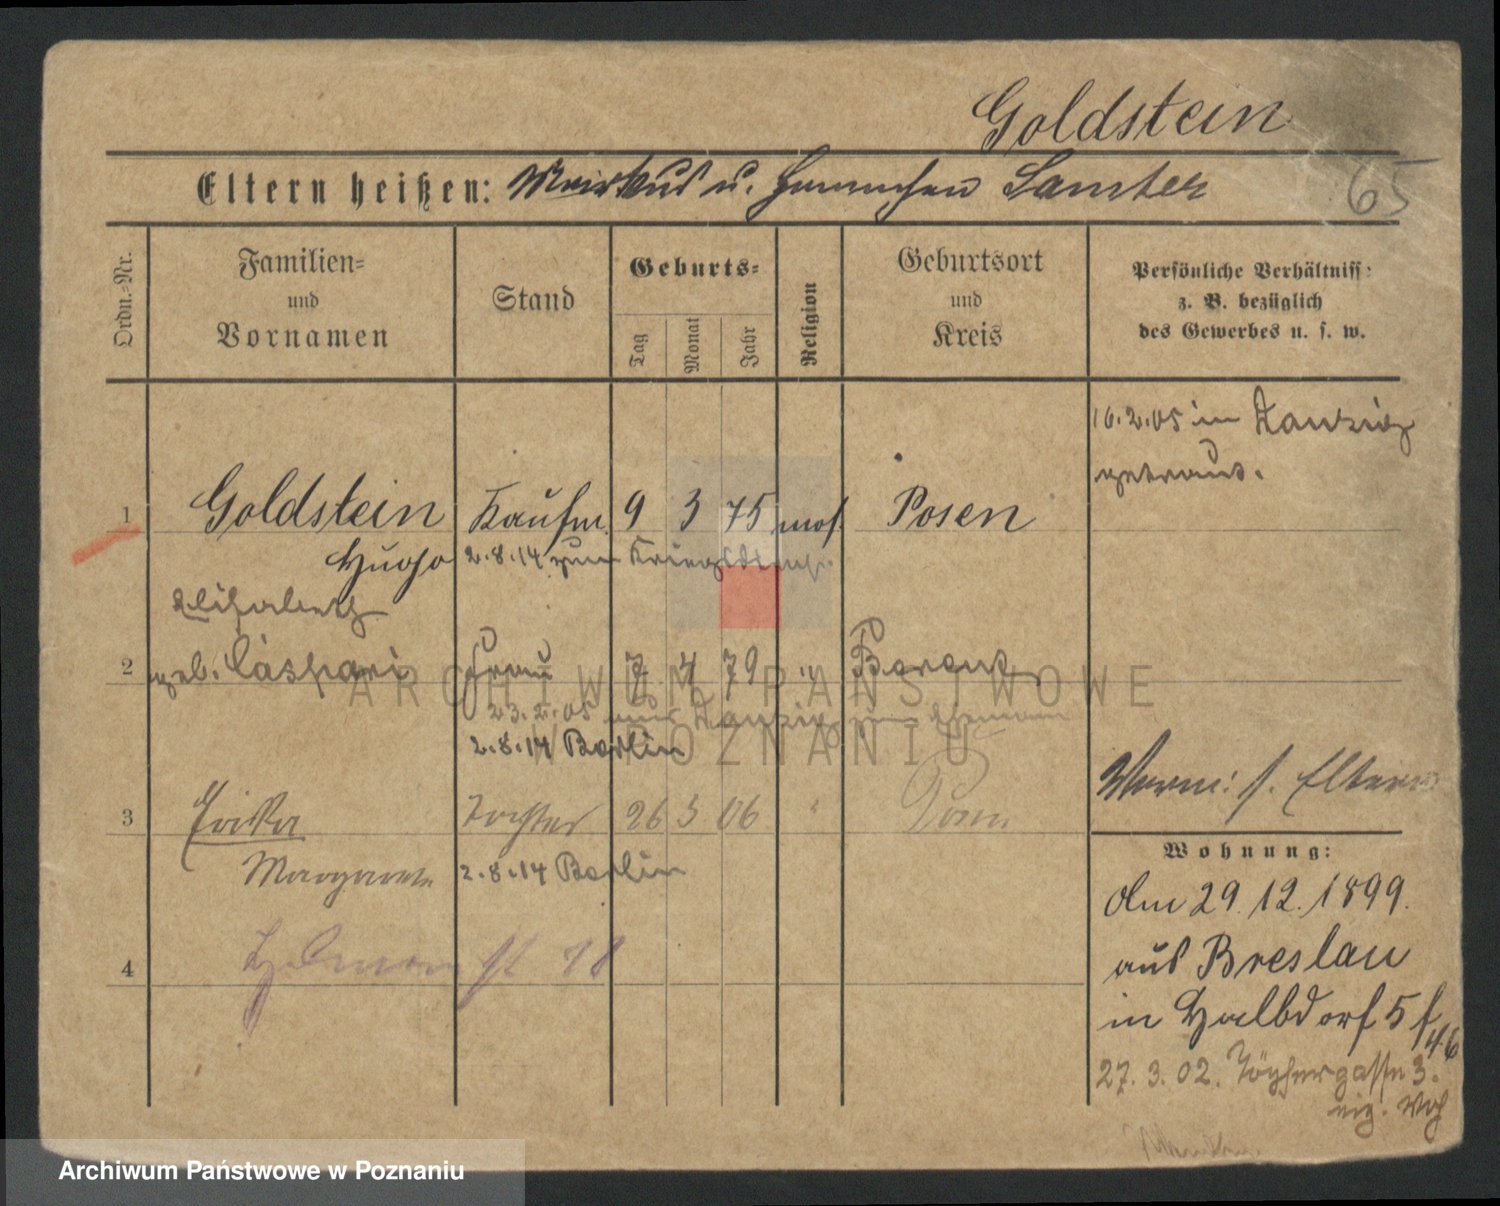 Goldstein
Eltern heißen: Markus u. Hannchen Samter
65
Ordn.-Nr.
Familien-
und
Vornamen
Stand
Geburts-
Tag
Monat
Jahr
Religion
Geburtsort
und
Kreis
Persönliche Verhältniss:
z. B. bezüglich
des Gewerbes u. s. w.
16.2.05 in Danzig
getraut.
1 Goldstein Kaufm. 9 3 75 mos. Posen
Hugo 2.8.14 zum
Elisabeth
2 geb. Caspari Frau 7 4 79 " Berent
23.2.05 aus Danzig zum Ehemann
2.8.14 Berlin
3 Erika Tochter 26 3 06 " Posen
Margarete 2.8.14 Berlin
Vorm: s. Eltern
Wohnung:
Am 29.12.1899.
aus Breslau
in Halbdorf 5
4
27.3.02. Töpfergasse 3.
eig. Whg
ARCHIWUM PAŃSTWOWE
W POZNANIU
Archiwum Państwowe w Poznaniu